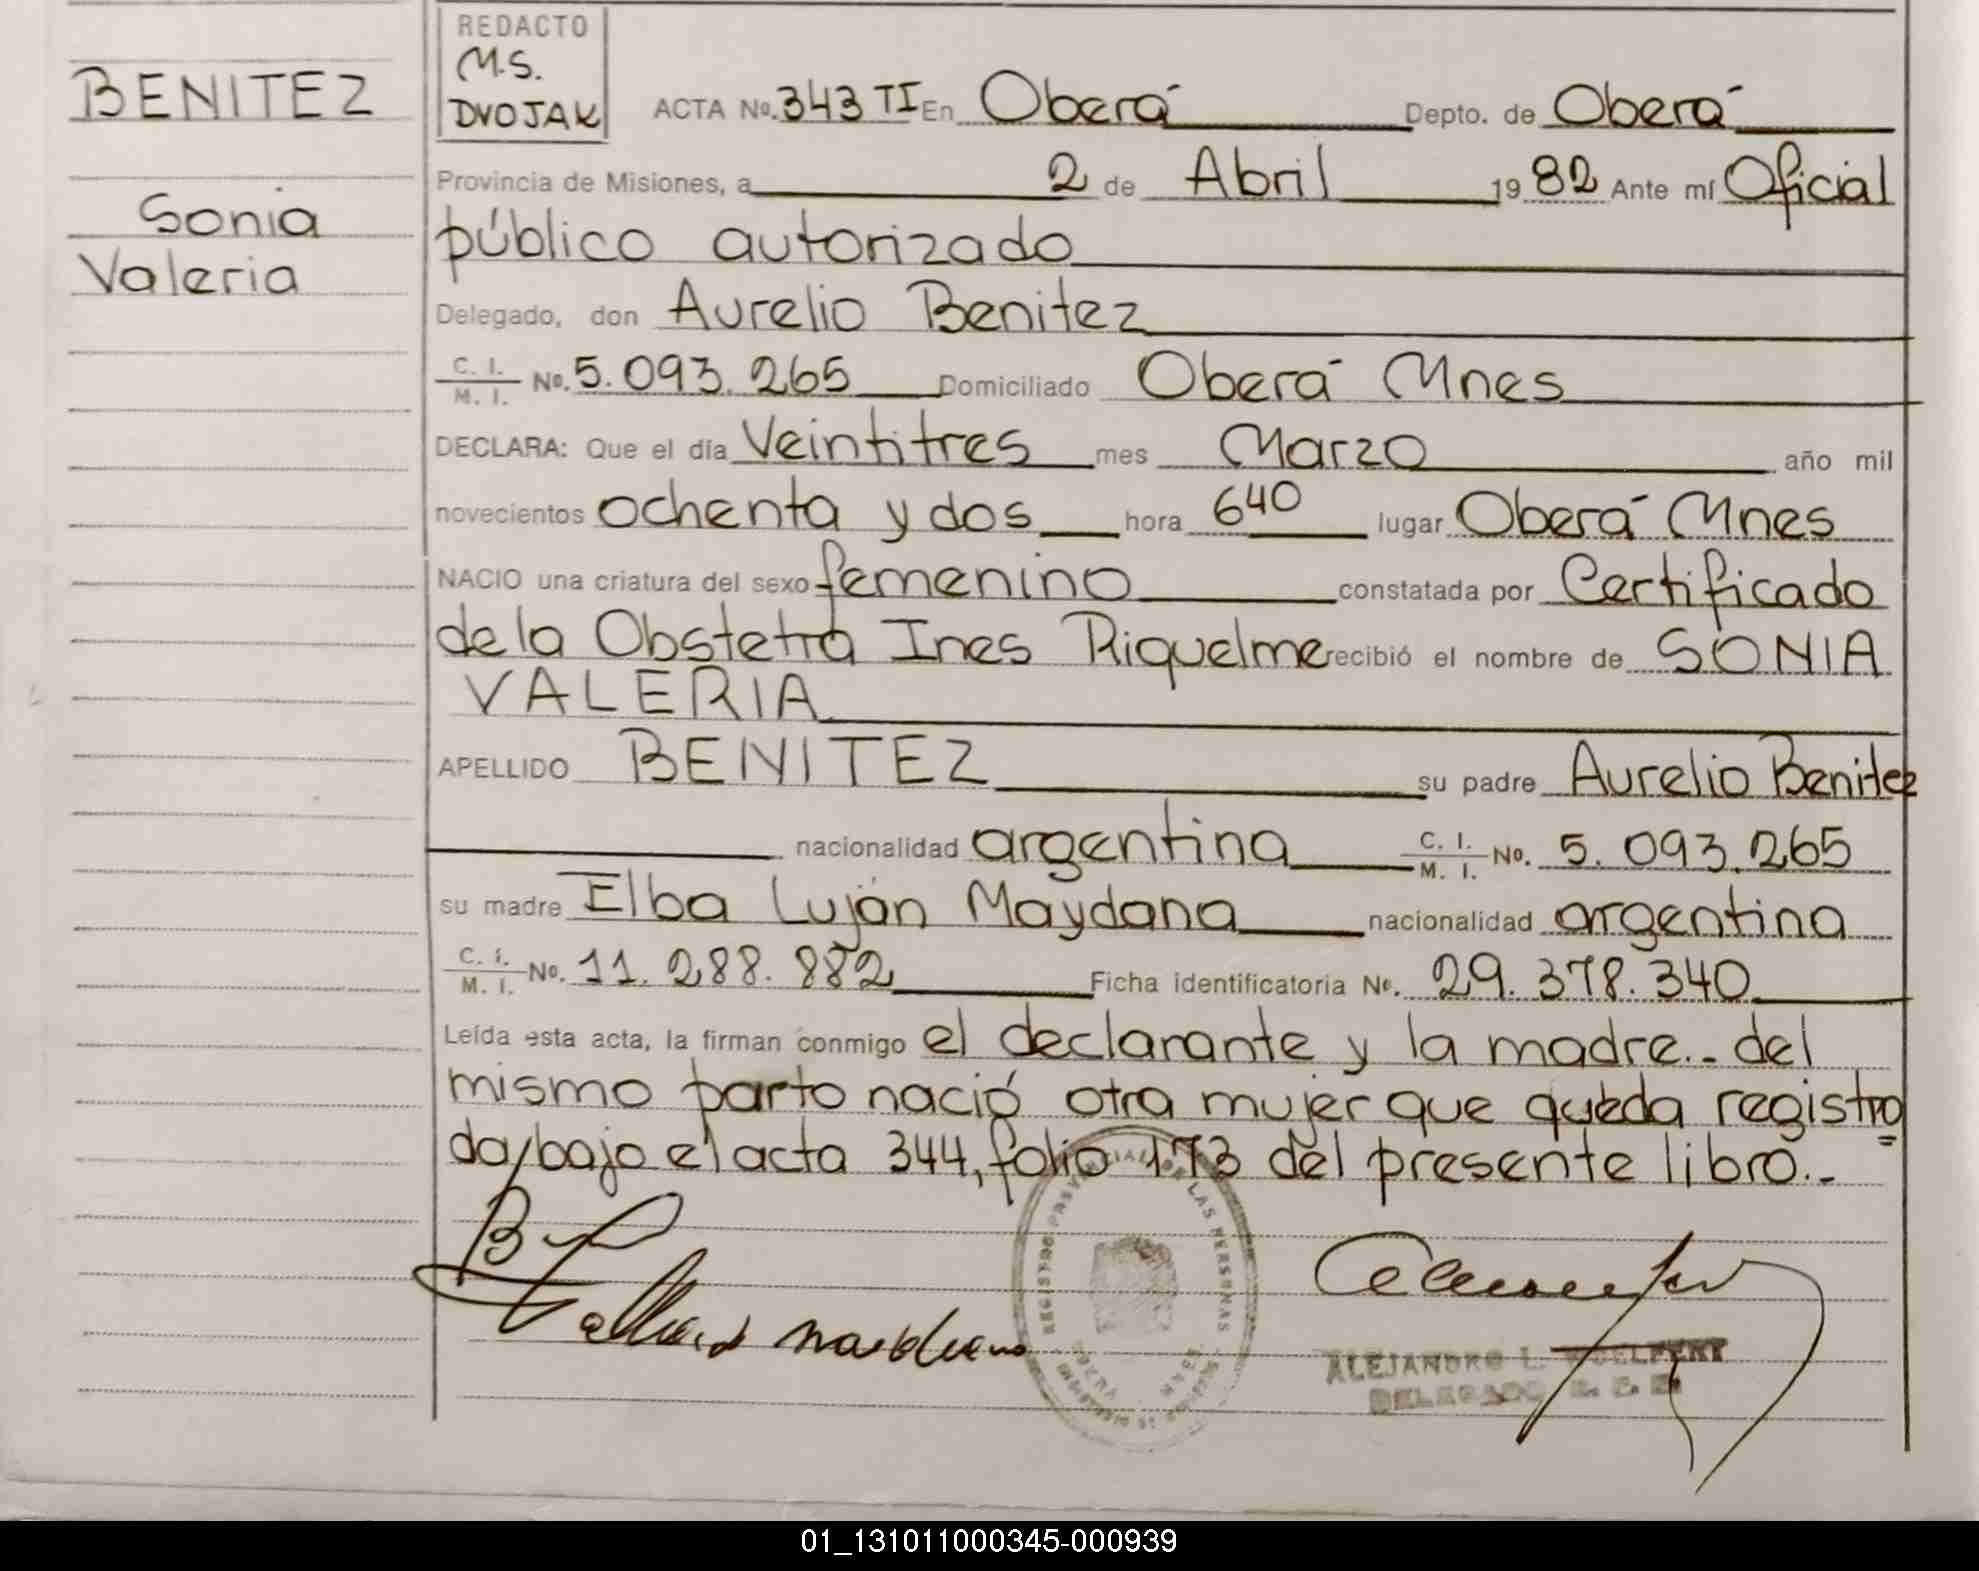 BENITEZ
Sonia
Valeria
REDACTO
M.S.
DVOJAK
ACTA No. 343 TI En Oberá Depto. de Oberá
Provincia de Misiones, a 2 de Abril 1982 Ante mí Oficial
público autorizado
Delegado, don Aurelio Benitez
C. I. / M. I. No. 5.093.265 Domiciliado Oberá Mnes
DECLARA: Que el día Veintitres mes Marzo año mil
novecientos ochenta y dos hora 640 lugar Oberá Mnes
NACIO una criatura del sexo femenino constatada por Certificado
de la Obstetra Ines Riquelme recibió el nombre de SONIA
VALERIA
APELLIDO BENITEZ su padre Aurelio Benitez
nacionalidad argentina C. I. / M. I. No. 5.093.265
su madre Elba Luján Maydana nacionalidad argentina
C. I. / M. I. No. 11.288.882 Ficha identificatoria No. 29.378.340
Leída esta acta, la firman conmigo el declarante y la madre.- del
mismo parto nació otra mujer que queda registra
da/bajo el acta 344, folio 173 del presente libro.-
ALEJANDRO L. WOELFERT
DELEGADO
01_131011000345-000939